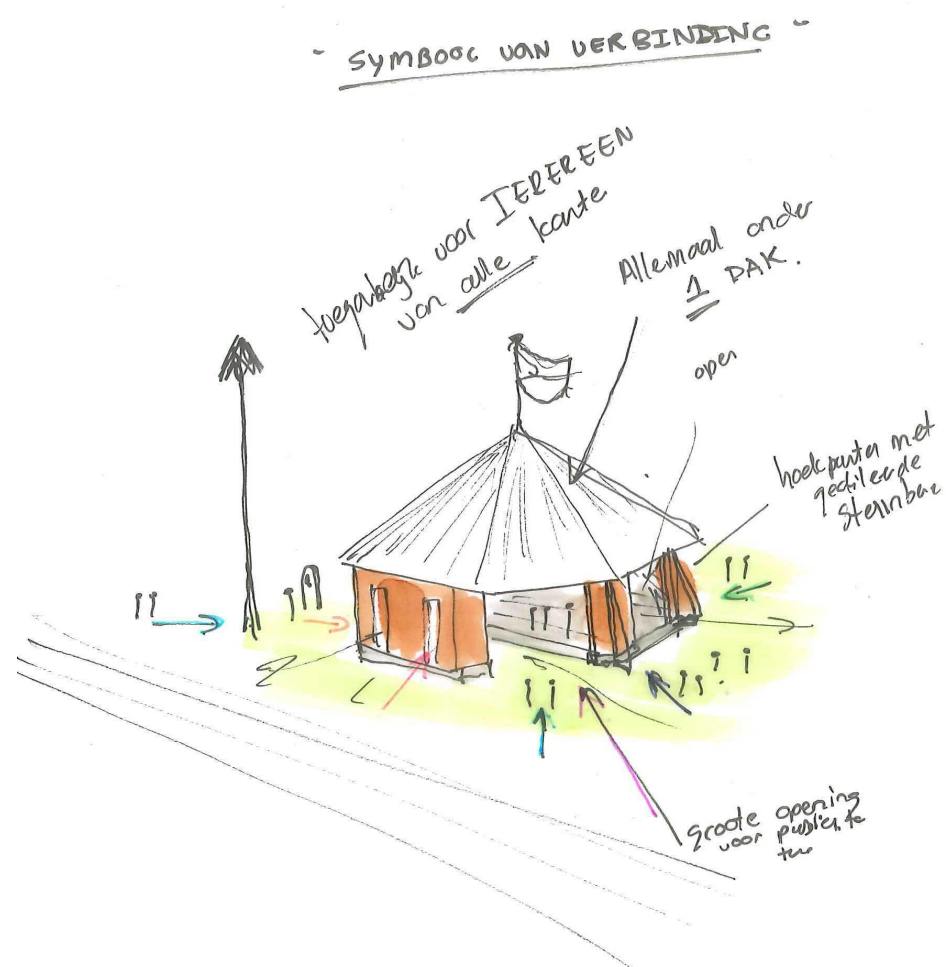 - SYMBOOL VAN VERBINDING -
toegankelijk voor IEDEREEN
van alle kante
Allemaal onder
1 DAK.
open
hoekpunten met
gedileerde
groote opening
voor